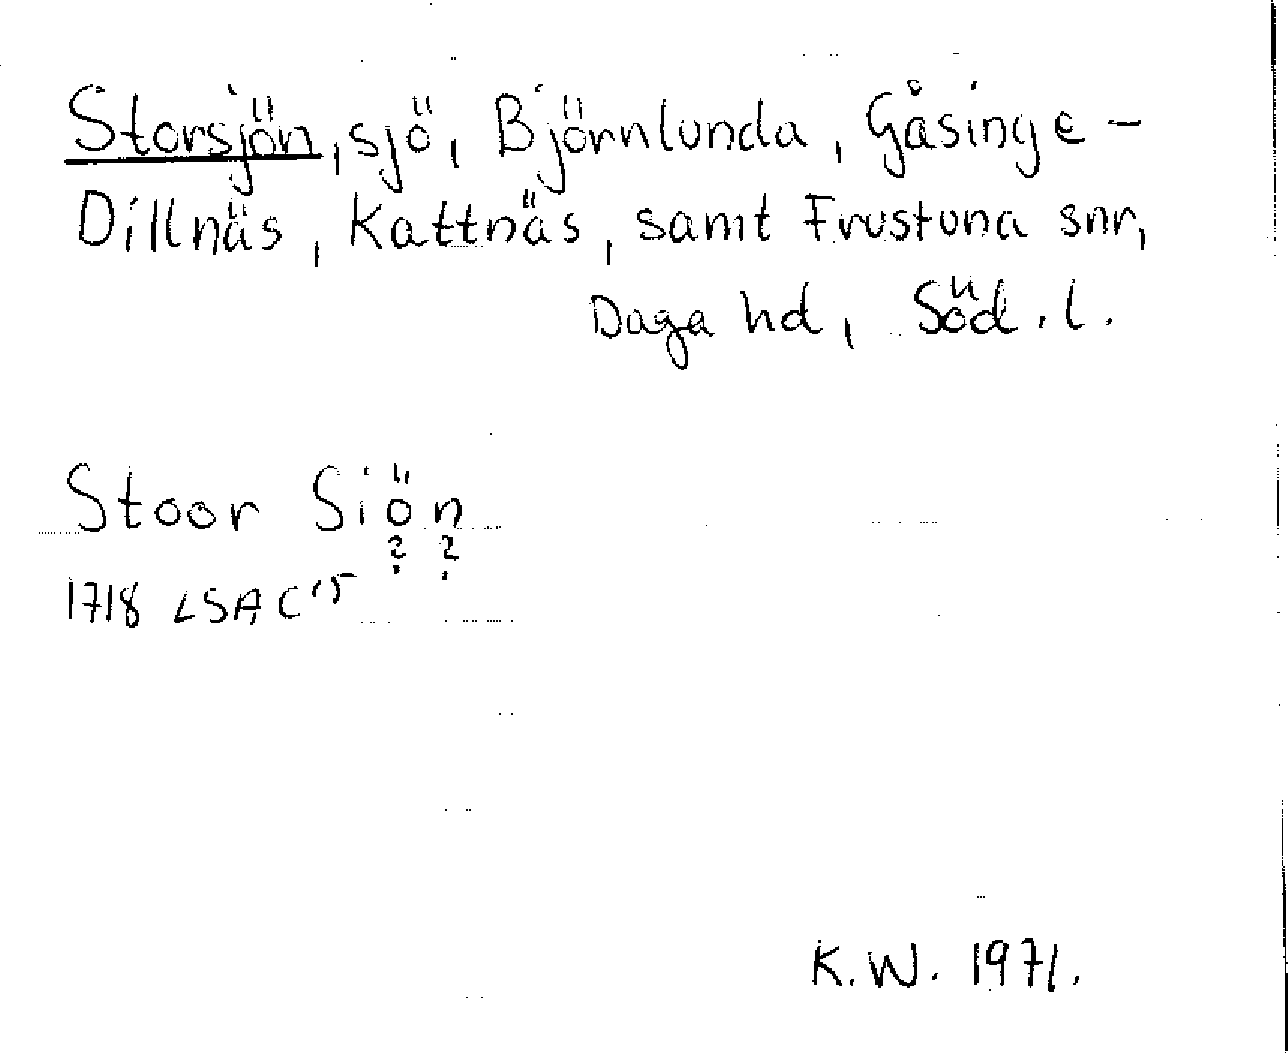 Storsjön, sjö, Björnlunda, Gåsinge-
Dillnäs, Kattnäs, samt Frustuna snr,
Daga hd, Söd. l.
Stoor Siön
? ?
1718 LSA C'5
K.W. 1971.